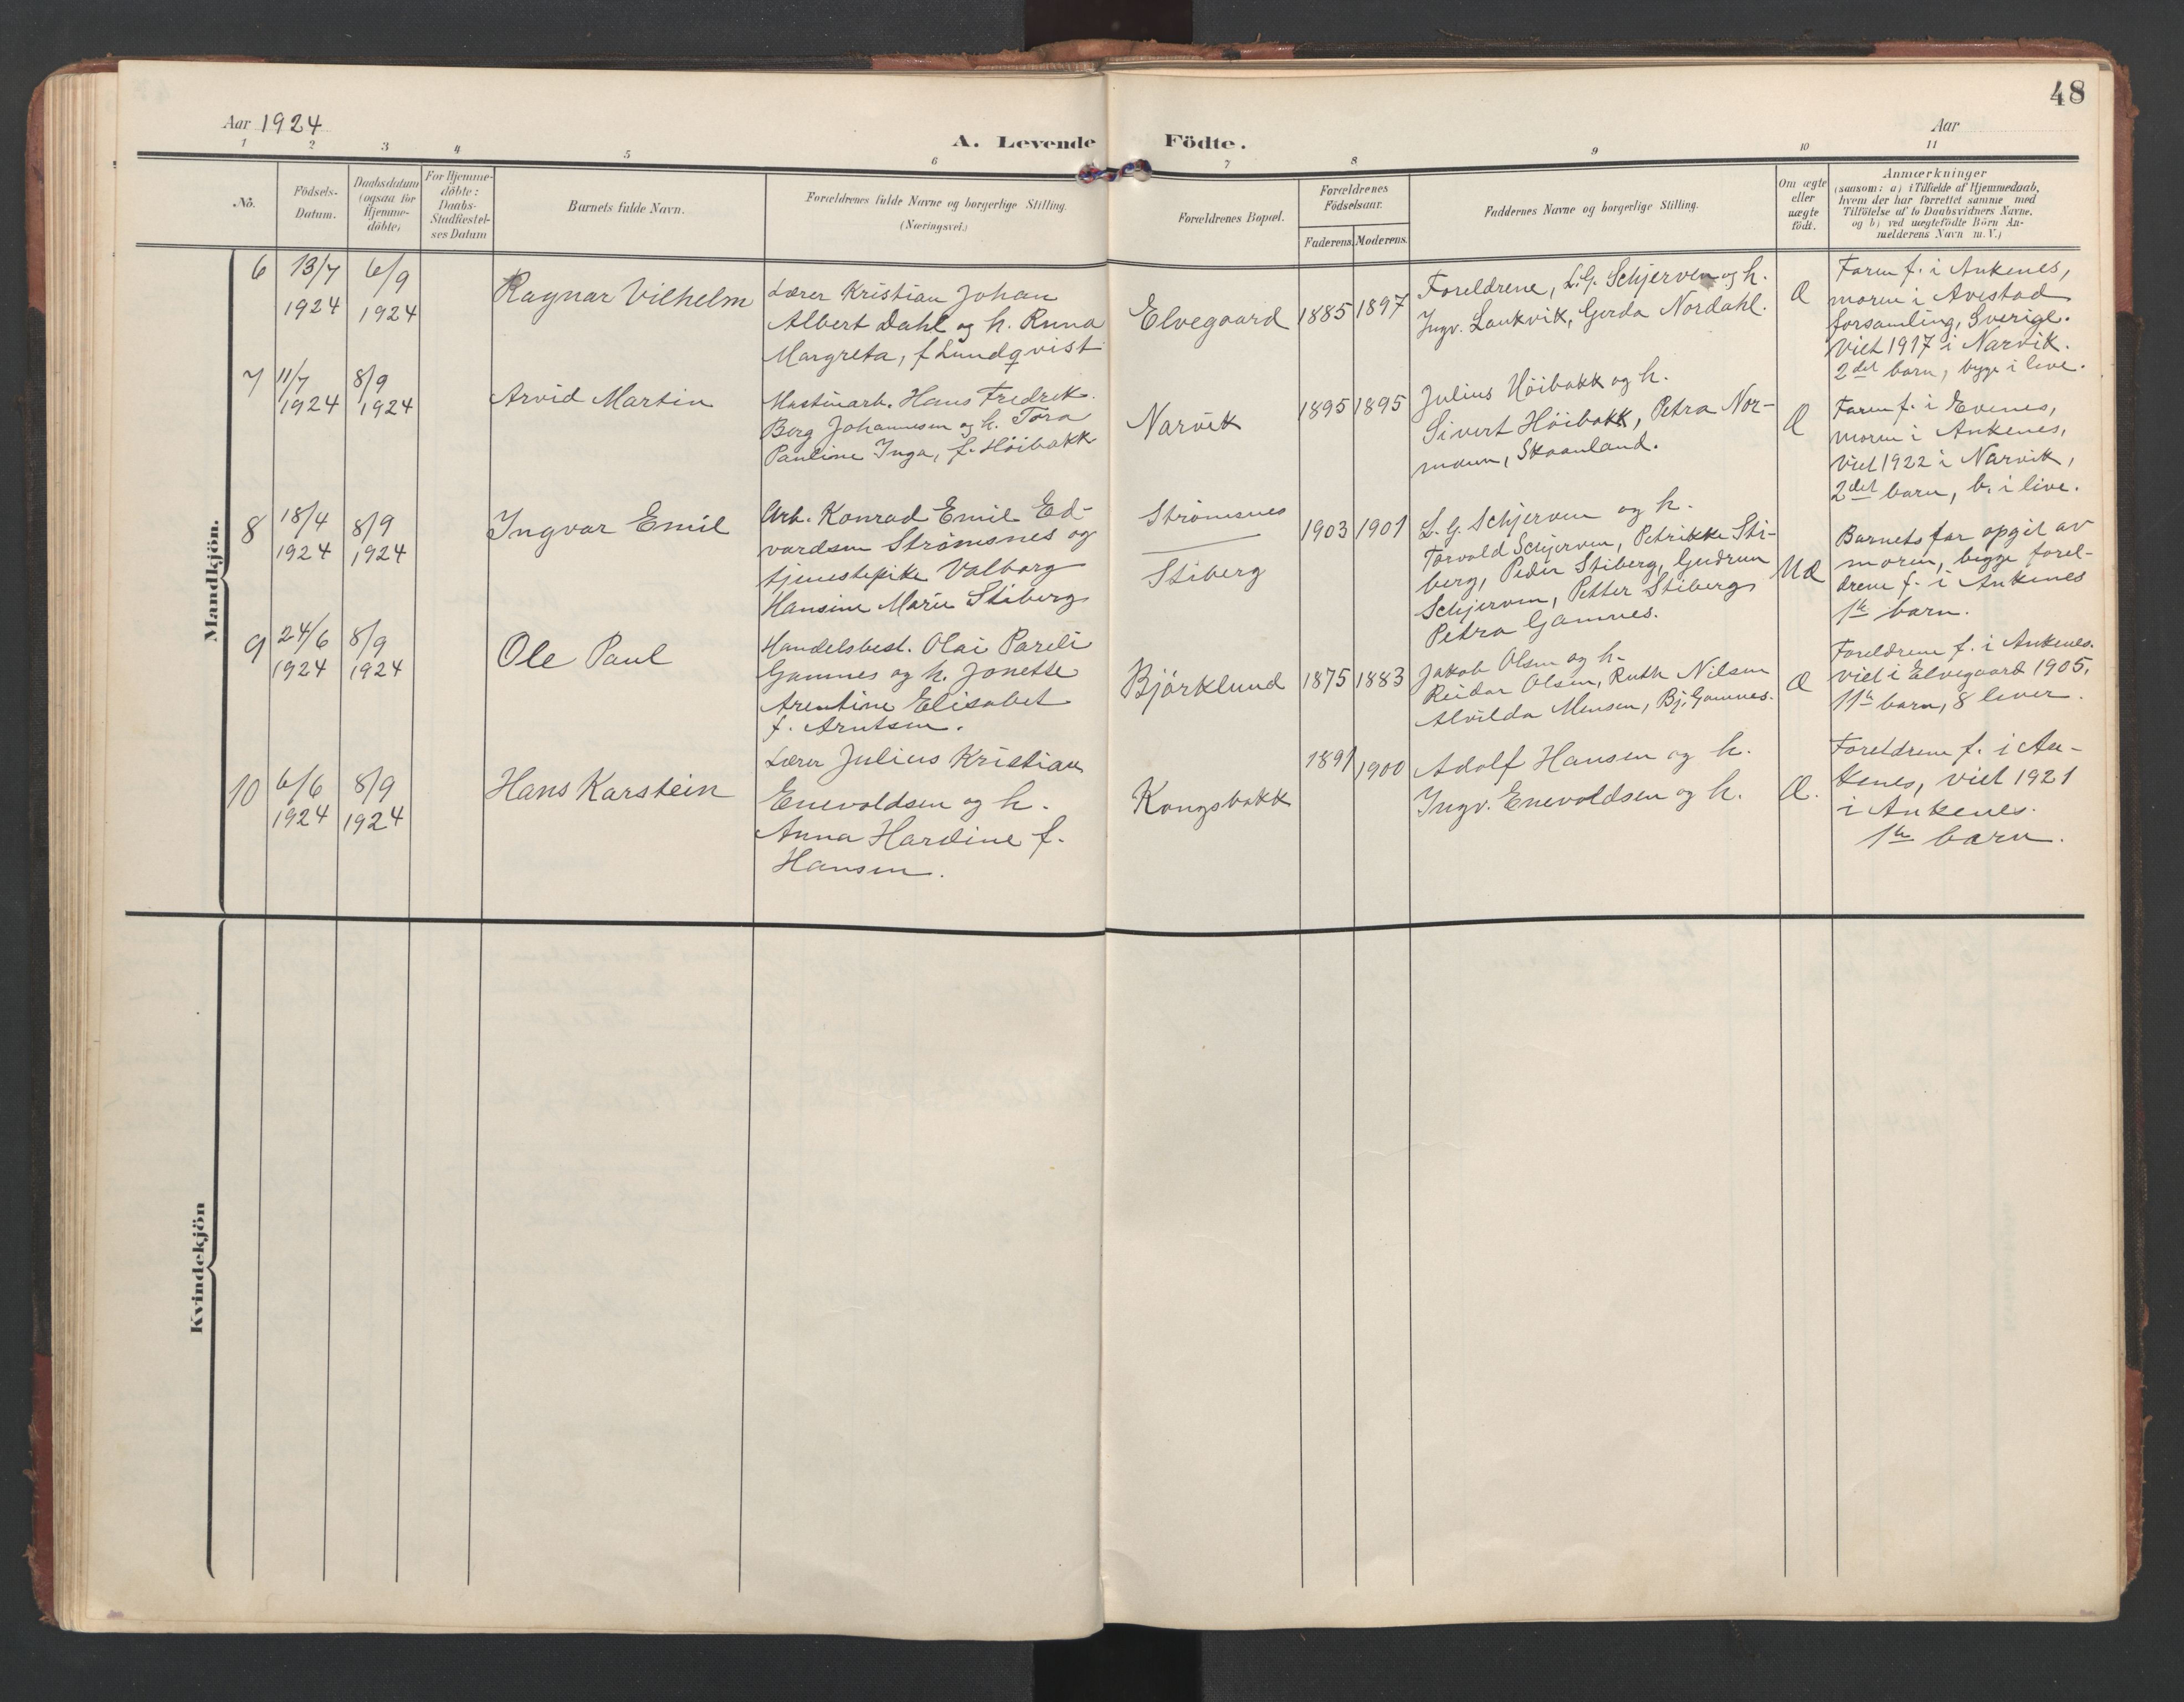 48
Aar 1924
A. Levende Födte.
Aar
1 2 3 4 5 6 7 8 9 10 11
No.
Födsels-
Datum.
Daabsdatum
(ogsaa for
Hjemme-
döbte)
For Hjemme-
döbte:
Daabs-
Stadfæstel-
ses Datum
Barnets fulde Navn.
Forældrenes fulde Navne og borgerlige Stilling.
(Næringsvei.)
Forældrenes Bopæl.
Forældrenes
Födselsaar.
Faderens. Moderens.
Faddernes Navne og borgerlige Stilling.
Om ægte
eller
uægte
födt.
Anmærkninger
(saasom: a) i Tilfælde af Hjemmedaab,
hvem der har forrettet samme med
Tilföielse af to Daabsvidners Navne,
og b) ved uægtefödte Börn An-
melderens Navn m. V.)
Mandkjön.
6
13/7
1924
6/9
1924
Ragnar Vilhelm
Lærer Kristian Johan
Albert Dahl og h. Runa
Margreta, f Lundqvist
Elvegaard
1885 1897
Foreldrene, L. G. Schjerven og h.
Ingv. Laukvik, Gerda Nordahl.
Æ
Faren f. i Ankenes,
moren i Avestad
forsamling, Sverige.
Viet 1917 i Narvik.
2det barn, begge i live.
7
11/7
1924
8/9
1924
Arvid Martin
Maskinarb. Hans Fredrik
Berg Johannesen og h. Tora
Pauline Inga, f. Höibakk
Narvik
1895 1895
Julius Höibakk og h.
Sivert Höibakk, Petra Nor-
mann, Skaanland.
Æ
Faren f. i Evenes,
moren i Ankenes,
Viet 1922 i Narvik,
2det barn, b. i live.
8
18/4
1924
8/9
1924
Ingvar Emil
Arb. Konrad Emil Ed-
vardsen Strömsnes og
tjenestepike Valborg
Hansine Marie Stiberg
Strömsnes
Stiberg
1903 1901
L. G. Schjerven og h.
Torvald Schjerven, Petrikke Sti-
berg, Peder Stiberg, Gudrun
Schjerven, Petter Stiberg
Petra Gamnes.
Uæ
Barnets far opgit av
moren, begge forel-
drene f. i Ankenes
1te barn.
9
24/6
1924
8/9
1924
Ole Paul
Handelsbest. Olai Pareli
Gamnes og h. Jonette
Arentine Elisabet
f. Arntsen.
Björklund
1875 1883
Jakob Olsen og h.
Reidar Olsen, Ruth Nilsen
Alvilda Monsen, Bj. Gamnes.
Æ
Foreldrene f. i Ankenes.
viet i Elvegaard 1905,
11te barn, 8 lever.
10
6/6
1924
8/9
1924
Hans Karstein
Lærer Julius Kristian
Enevoldsen og h.
Anna Hardine f.
Hansen.
Kongsbakk
1891 1900
Adolf Hansen og h.
Ingv. Enevoldsen og h.
Æ.
Foreldrene f. i An-
kenes, viet 1921
i Ankenes.
1te barn.
Kvindekjön